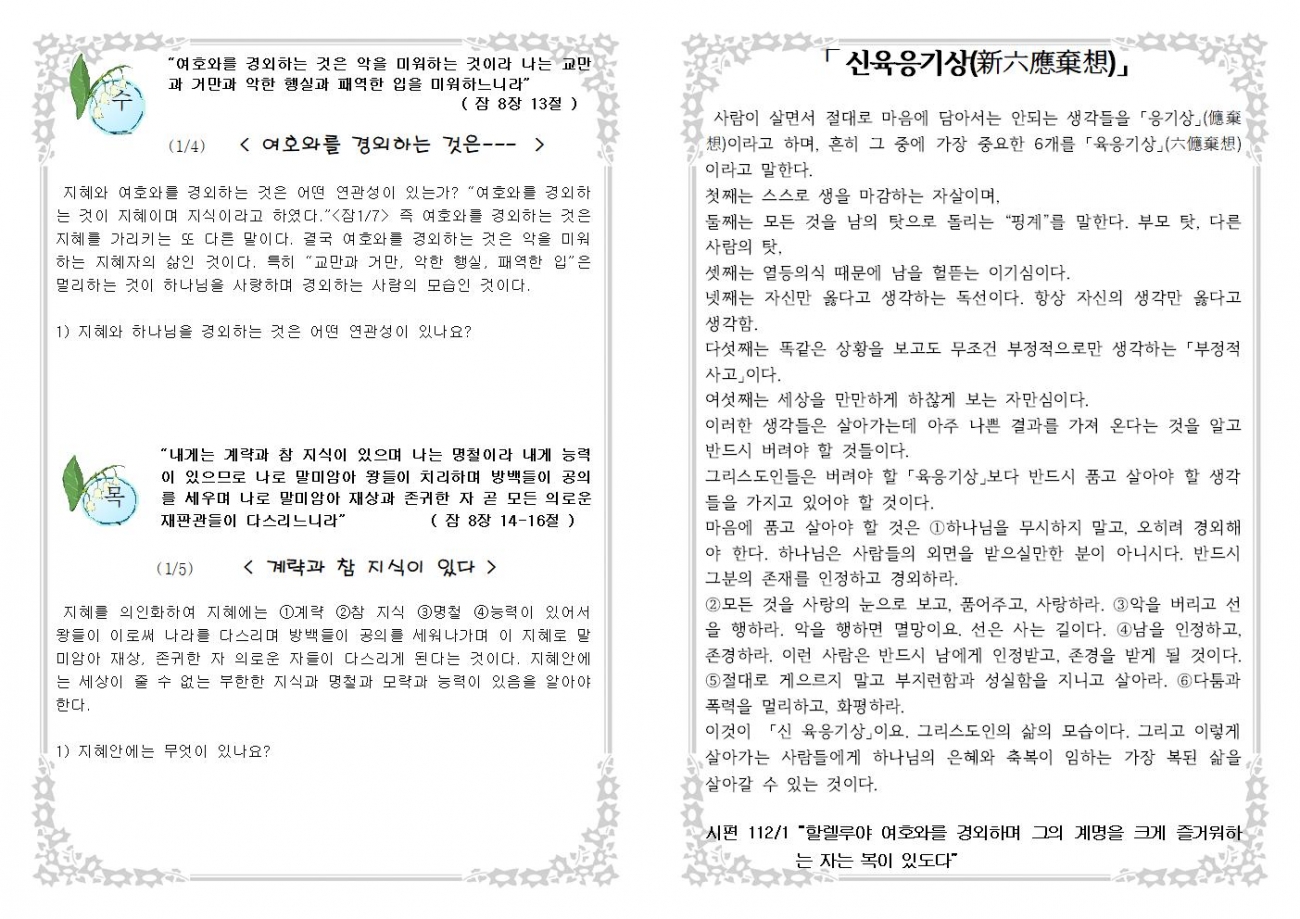 수
“여호와를 경외하는 것은 악을 미워하는 것이라 나는 교만
과 거만과 악한 행실과 패역한 입을 미워하느니라”
( 잠 8장 13절 )
(1/4) < 여호와를 경외하는 것은--- >
지혜와 여호와를 경외하는 것은 어떤 연관성이 있는가? “여호와를 경외하
는 것이 지혜이며 지식이라고 하였다.”<잠1/7> 즉 여호와를 경외하는 것은
지혜를 가리키는 또 다른 말이다. 결국 여호와를 경외하는 것은 악을 미워
하는 지혜자의 삶인 것이다. 특히 “교만과 거만, 악한 행실, 패역한 입”은
멀리하는 것이 하나님을 사랑하며 경외하는 사람의 모습인 것이다.
1) 지혜와 하나님을 경외하는 것은 어떤 연관성이 있나요?
목
“내게는 계략과 참 지식이 있으며 나는 명철이라 내게 능력
이 있으므로 나로 말미암아 왕들이 치리하며 방백들이 공의
를 세우며 나로 말미암아 재상과 존귀한 자 곧 모든 의로운
재판관들이 다스리느니라” ( 잠 8장 14-16절 )
(1/5) < 계략과 참 지식이 있다 >
지혜를 의인화하여 지혜에는 ①계략 ②참 지식 ③명철 ④능력이 있어서
왕들이 이로써 나라를 다스리며 방백들이 공의를 세워나가며 이 지혜로 말
미암아 재상, 존귀한 자 의로운 자들이 다스리게 된다는 것이다. 지혜안에
는 세상이 줄 수 없는 무한한 지식과 명철과 모략과 능력이 있음을 알아야
한다.
1) 지혜안에는 무엇이 있나요?
「 신육응기상(新六應棄想)」
사람이 살면서 절대로 마음에 담아서는 안되는 생각들을 「응기상」(儱棄
想)이라고 하며, 흔히 그 중에 가장 중요한 6개를 「육응기상」(六儱棄想)
이라고 말한다.
첫째는 스스로 생을 마감하는 자살이며,
둘째는 모든 것을 남의 탓으로 돌리는 “핑계”를 말한다. 부모 탓, 다른
사람의 탓,
셋째는 열등의식 때문에 남을 헐뜯는 이기심이다.
넷째는 자신만 옳다고 생각하는 독선이다. 항상 자신의 생각만 옳다고
생각함.
다섯째는 똑같은 상황을 보고도 무조건 부정적으로만 생각하는 「부정적
사고」이다.
여섯째는 세상을 만만하게 하찮게 보는 자만심이다.
이러한 생각들은 살아가는데 아주 나쁜 결과를 가져 온다는 것을 알고
반드시 버려야 할 것들이다.
그리스도인들은 버려야 할 「육응기상」보다 반드시 품고 살아야 할 생각
들을 가지고 있어야 할 것이다.
마음에 품고 살아야 할 것은 ①하나님을 무시하지 말고, 오히려 경외해
야 한다. 하나님은 사람들의 외면을 받으실만한 분이 아니시다. 반드시
그분의 존재를 인정하고 경외하라.
②모든 것을 사랑의 눈으로 보고, 품어주고, 사랑하라. ③악을 버리고 선
을 행하라. 악을 행하면 멸망이요. 선은 사는 길이다. ④남을 인정하고,
존경하라. 이런 사람은 반드시 남에게 인정받고, 존경을 받게 될 것이다.
⑤절대로 게으르지 말고 부지런함과 성실함을 지니고 살아라. ⑥다툼과
폭력을 멀리하고, 화평하라.
이것이 「신 육응기상」이요. 그리스도인의 삶의 모습이다. 그리고 이렇게
살아가는 사람들에게 하나님의 은혜와 축복이 임하는 가장 복된 삶을
살아갈 수 있는 것이다.
시편 112/1 “할렐루야 여호와를 경외하며 그의 계명을 크게 즐거워하
는 자는 복이 있도다”